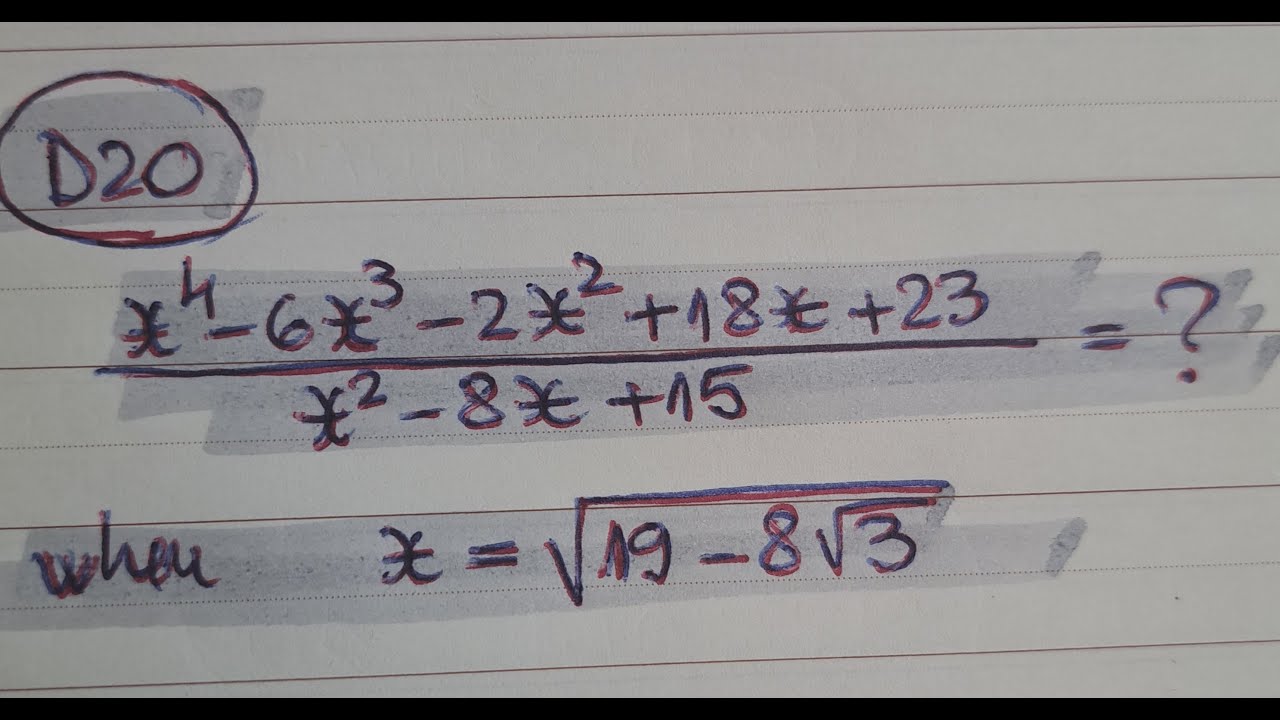 D20
x⁴ - 6x³ - 2x² + 18x + 23 = ?
x² - 8x + 15
when x = √(19 - 8√3)